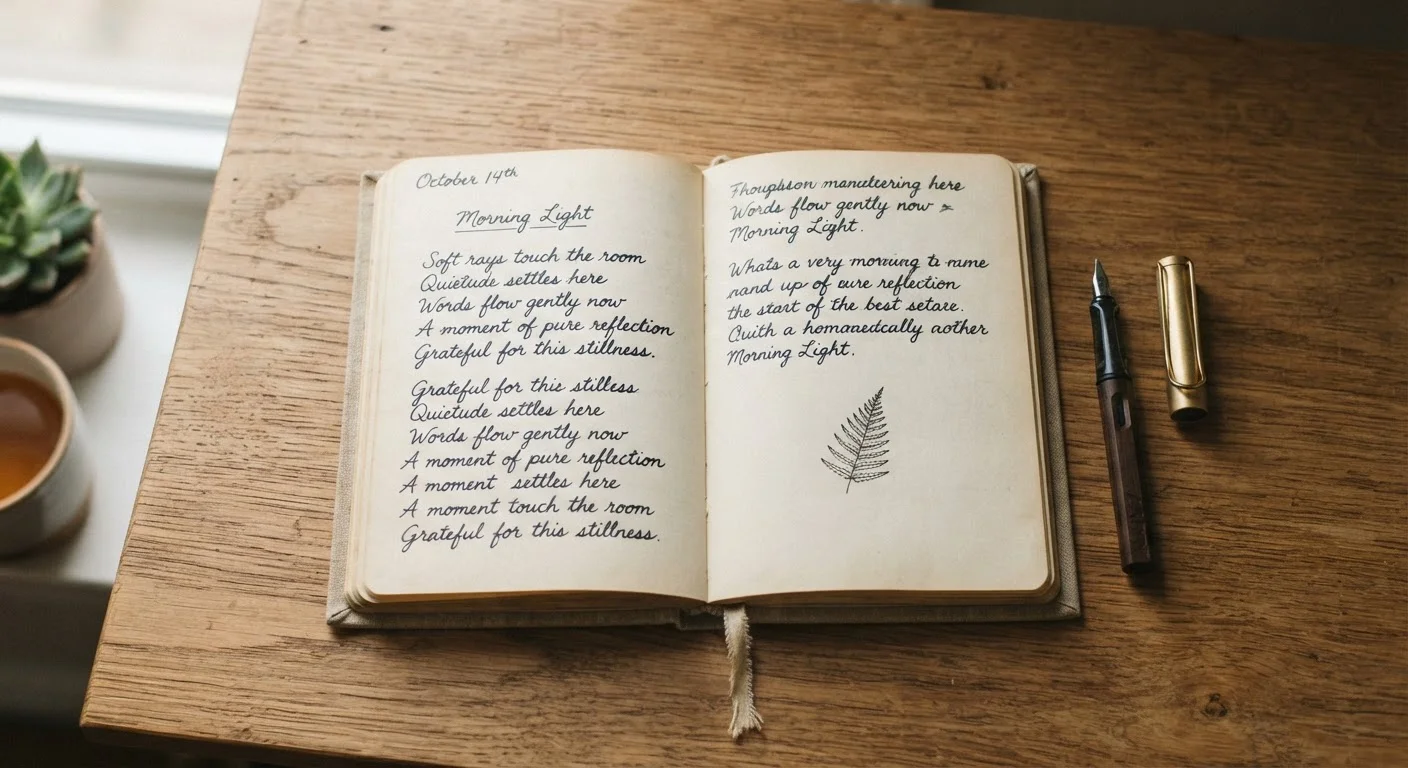 October 14th
Morning Light
Soft rays touch the room
Quietude settles here
Words flow gently now
A moment of pure reflection
Grateful for this stillness.
Grateful for this stilless
Quietude settles here
Words flow gently now
A moment of pure reflection
A moment settles here
A moment touch the room
Grateful for this stillness.
here
Words flow gently now
Morning Light.
Whats a very morning to name
up of reflection
the start of the best setare.
a aother
Morning Light.